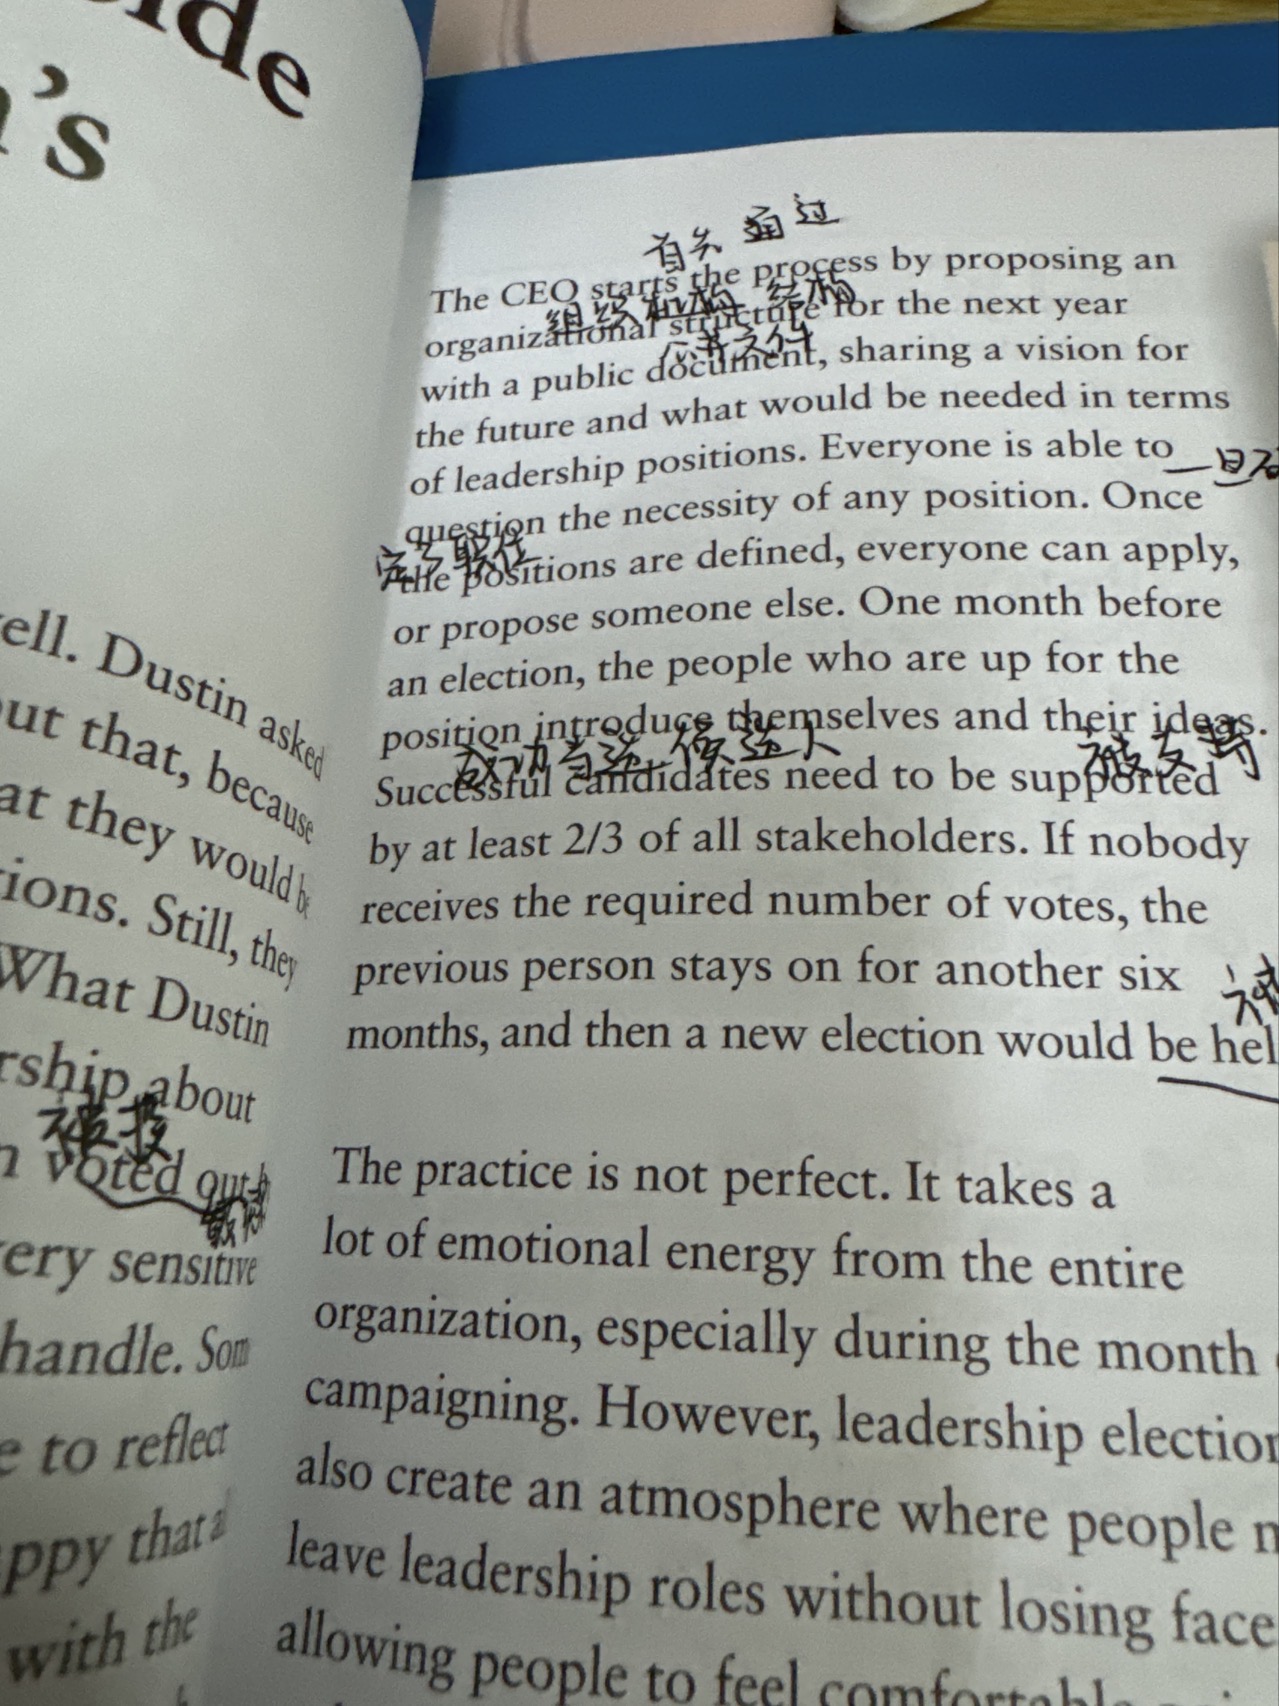 's
ell. Dustin asked
ut that, because
at they would be
ions. Still, they
What Dustin
rship about
被投
voted out
敏感
ery sensitive
handle. Som
e to reflect
ppy that
with the
首先 通过
The CEO starts the process by proposing an
组织机构 结构
organizational structure for the next year
公共文件
with a public document, sharing a vision for
the future and what would be needed in terms
of leadership positions. Everyone is able to
一旦
question the necessity of any position. Once
定了职位
the positions are defined, everyone can apply,
or propose someone else. One month before
an election, the people who are up for the
position introduce themselves and their ideas.
成功当选 候选人 被支持
Successful candidates need to be supported
by at least 2/3 of all stakeholders. If nobody
receives the required number of votes, the
previous person stays on for another six
months, and then a new election would be hel
The practice is not perfect. It takes a
lot of emotional energy from the entire
organization, especially during the month
campaigning. However, leadership election
also create an atmosphere where people
leave leadership roles without losing face
allowing people to feel